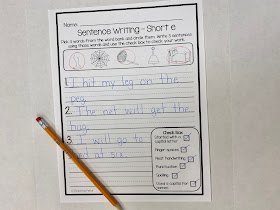 Name:
Sentence Writing - Short e
Pick 3 words from the word bank and circle them. Write 3 sentences
using those words and use the check box to check your work.
1. I hit my leg on the
peg.
2. The net will get the
bug.
3. I will go to
at six.
Check Box
Started with a
capital letter
Finger spaces
Neat handwriting
Punctuation
Spelling
Used a capital for
names